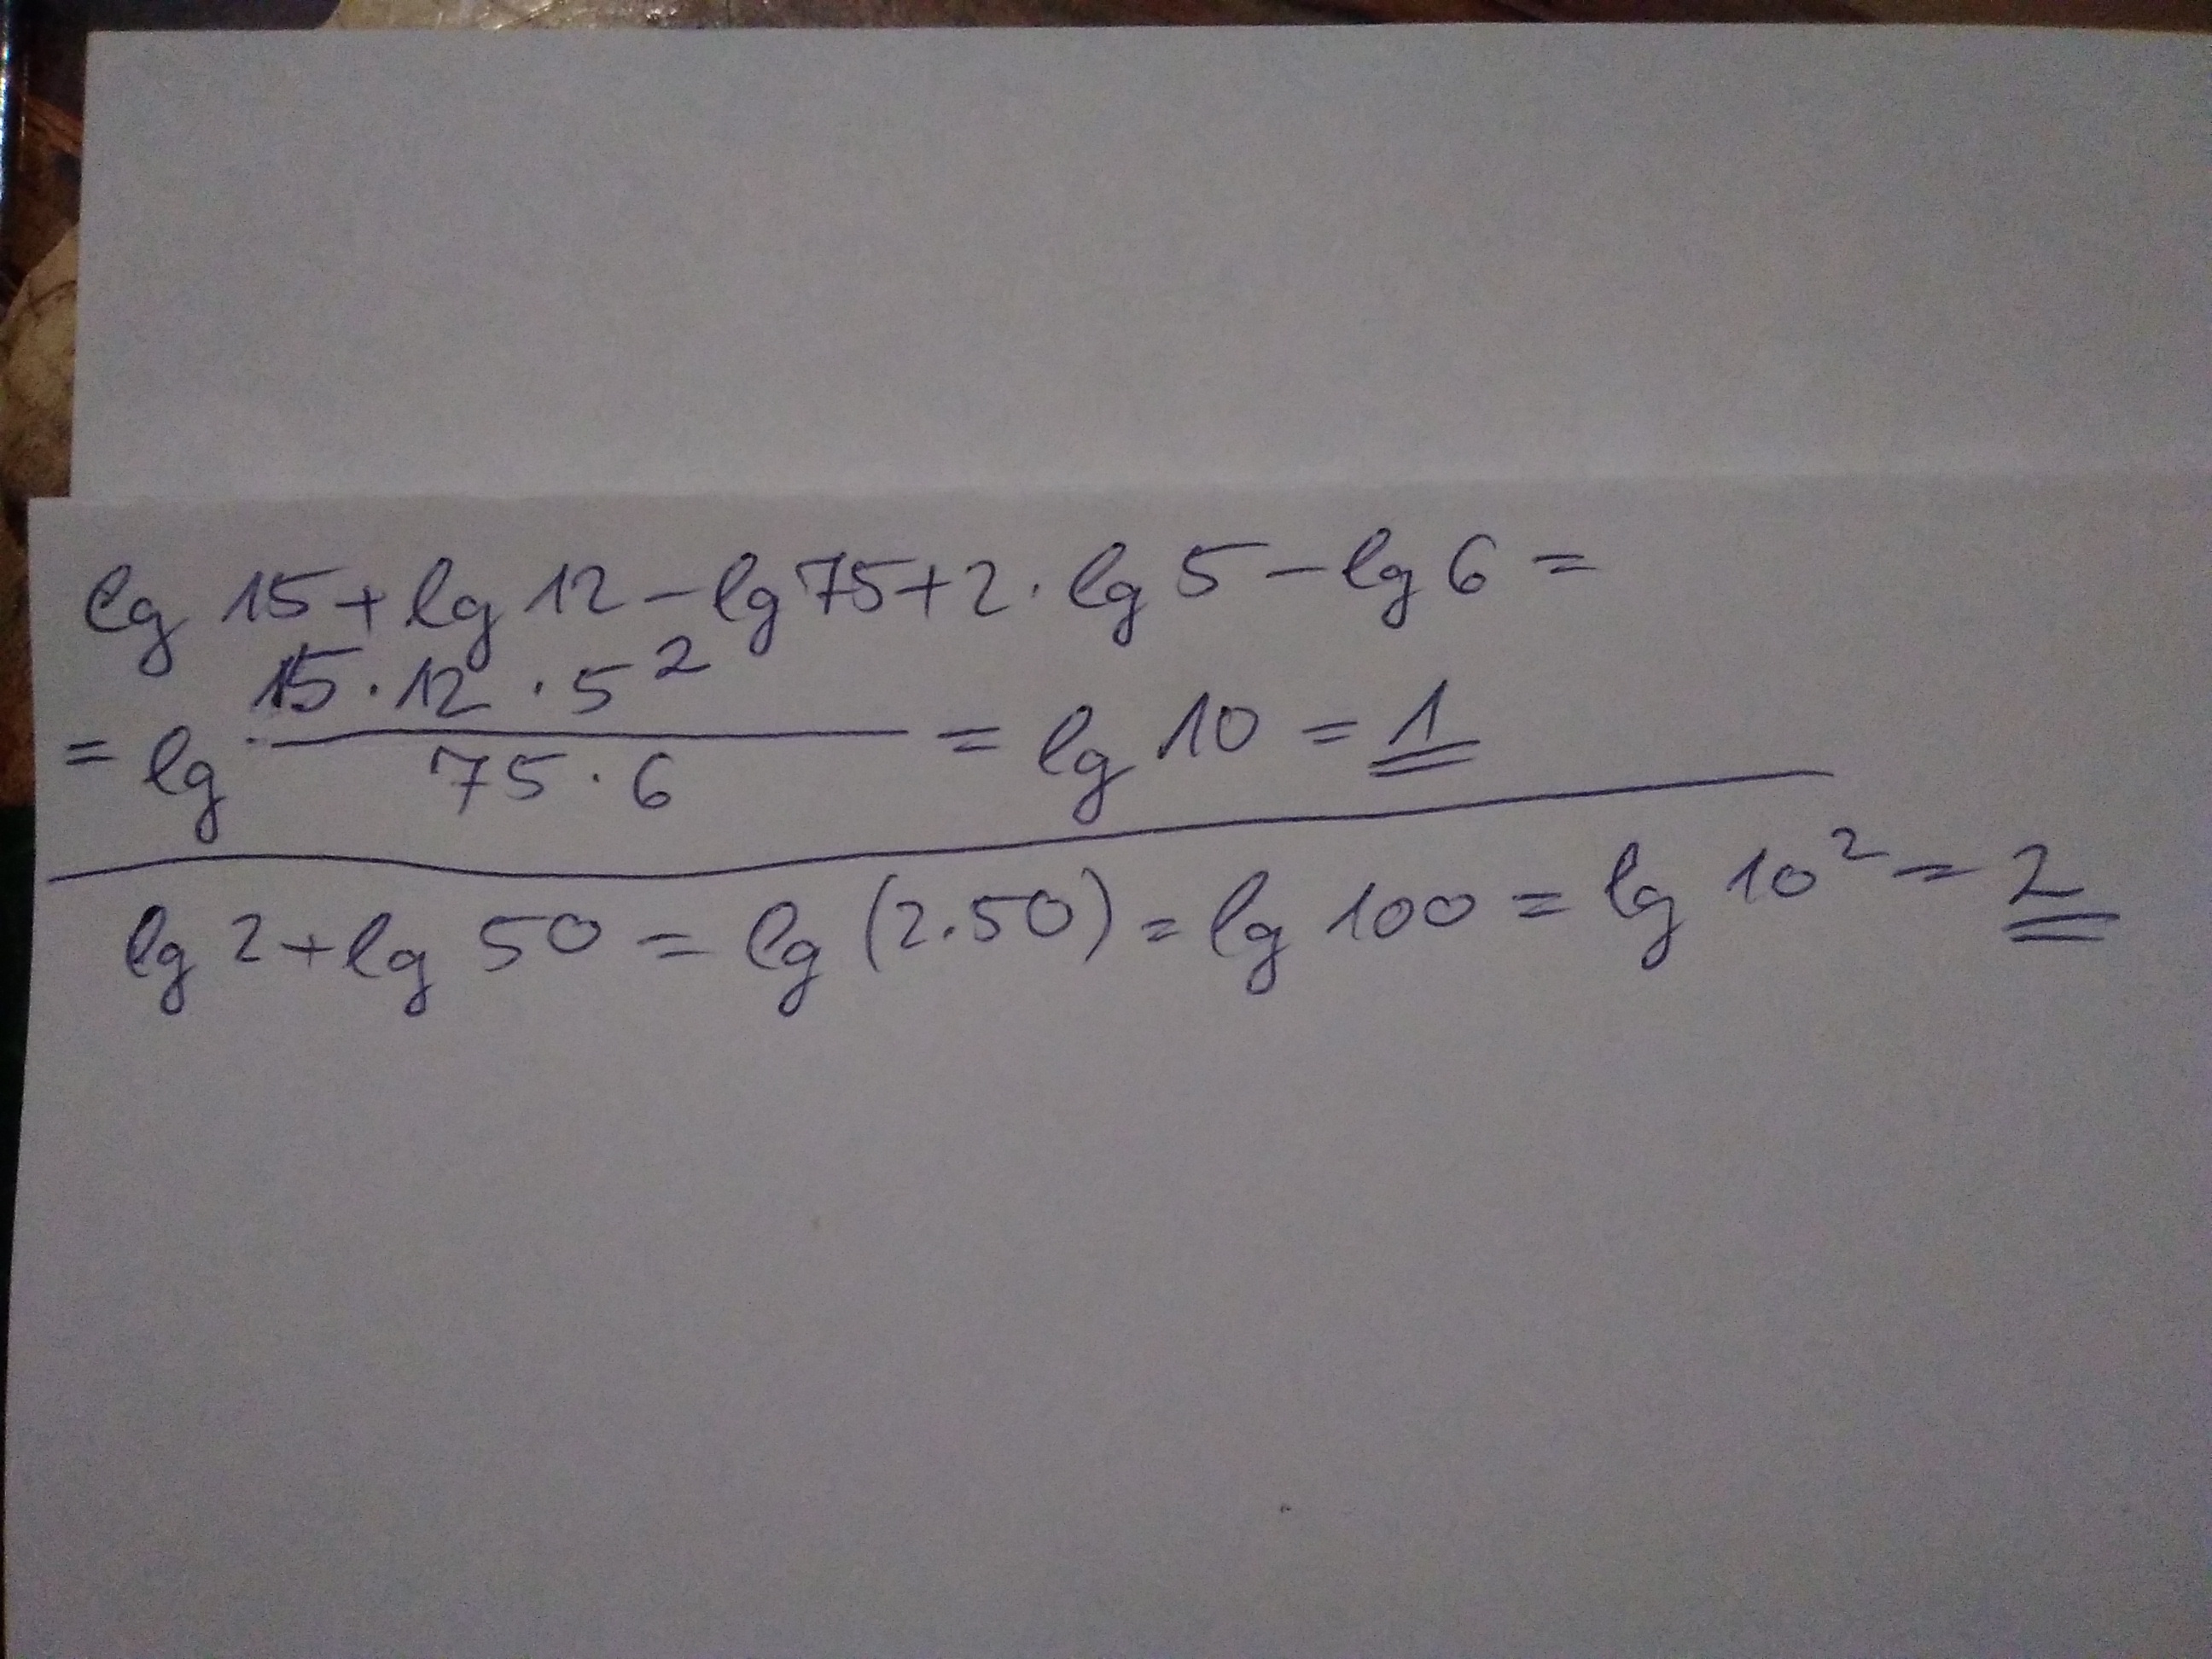 lg 15 + lg 12 - lg 75 + 2 · lg 5 - lg 6 =
= lg (15 · 12 · 5²)/(75 · 6) = lg 10 = 1
lg 2 + lg 50 = lg (2 · 50) = lg 100 = lg 10² = 2